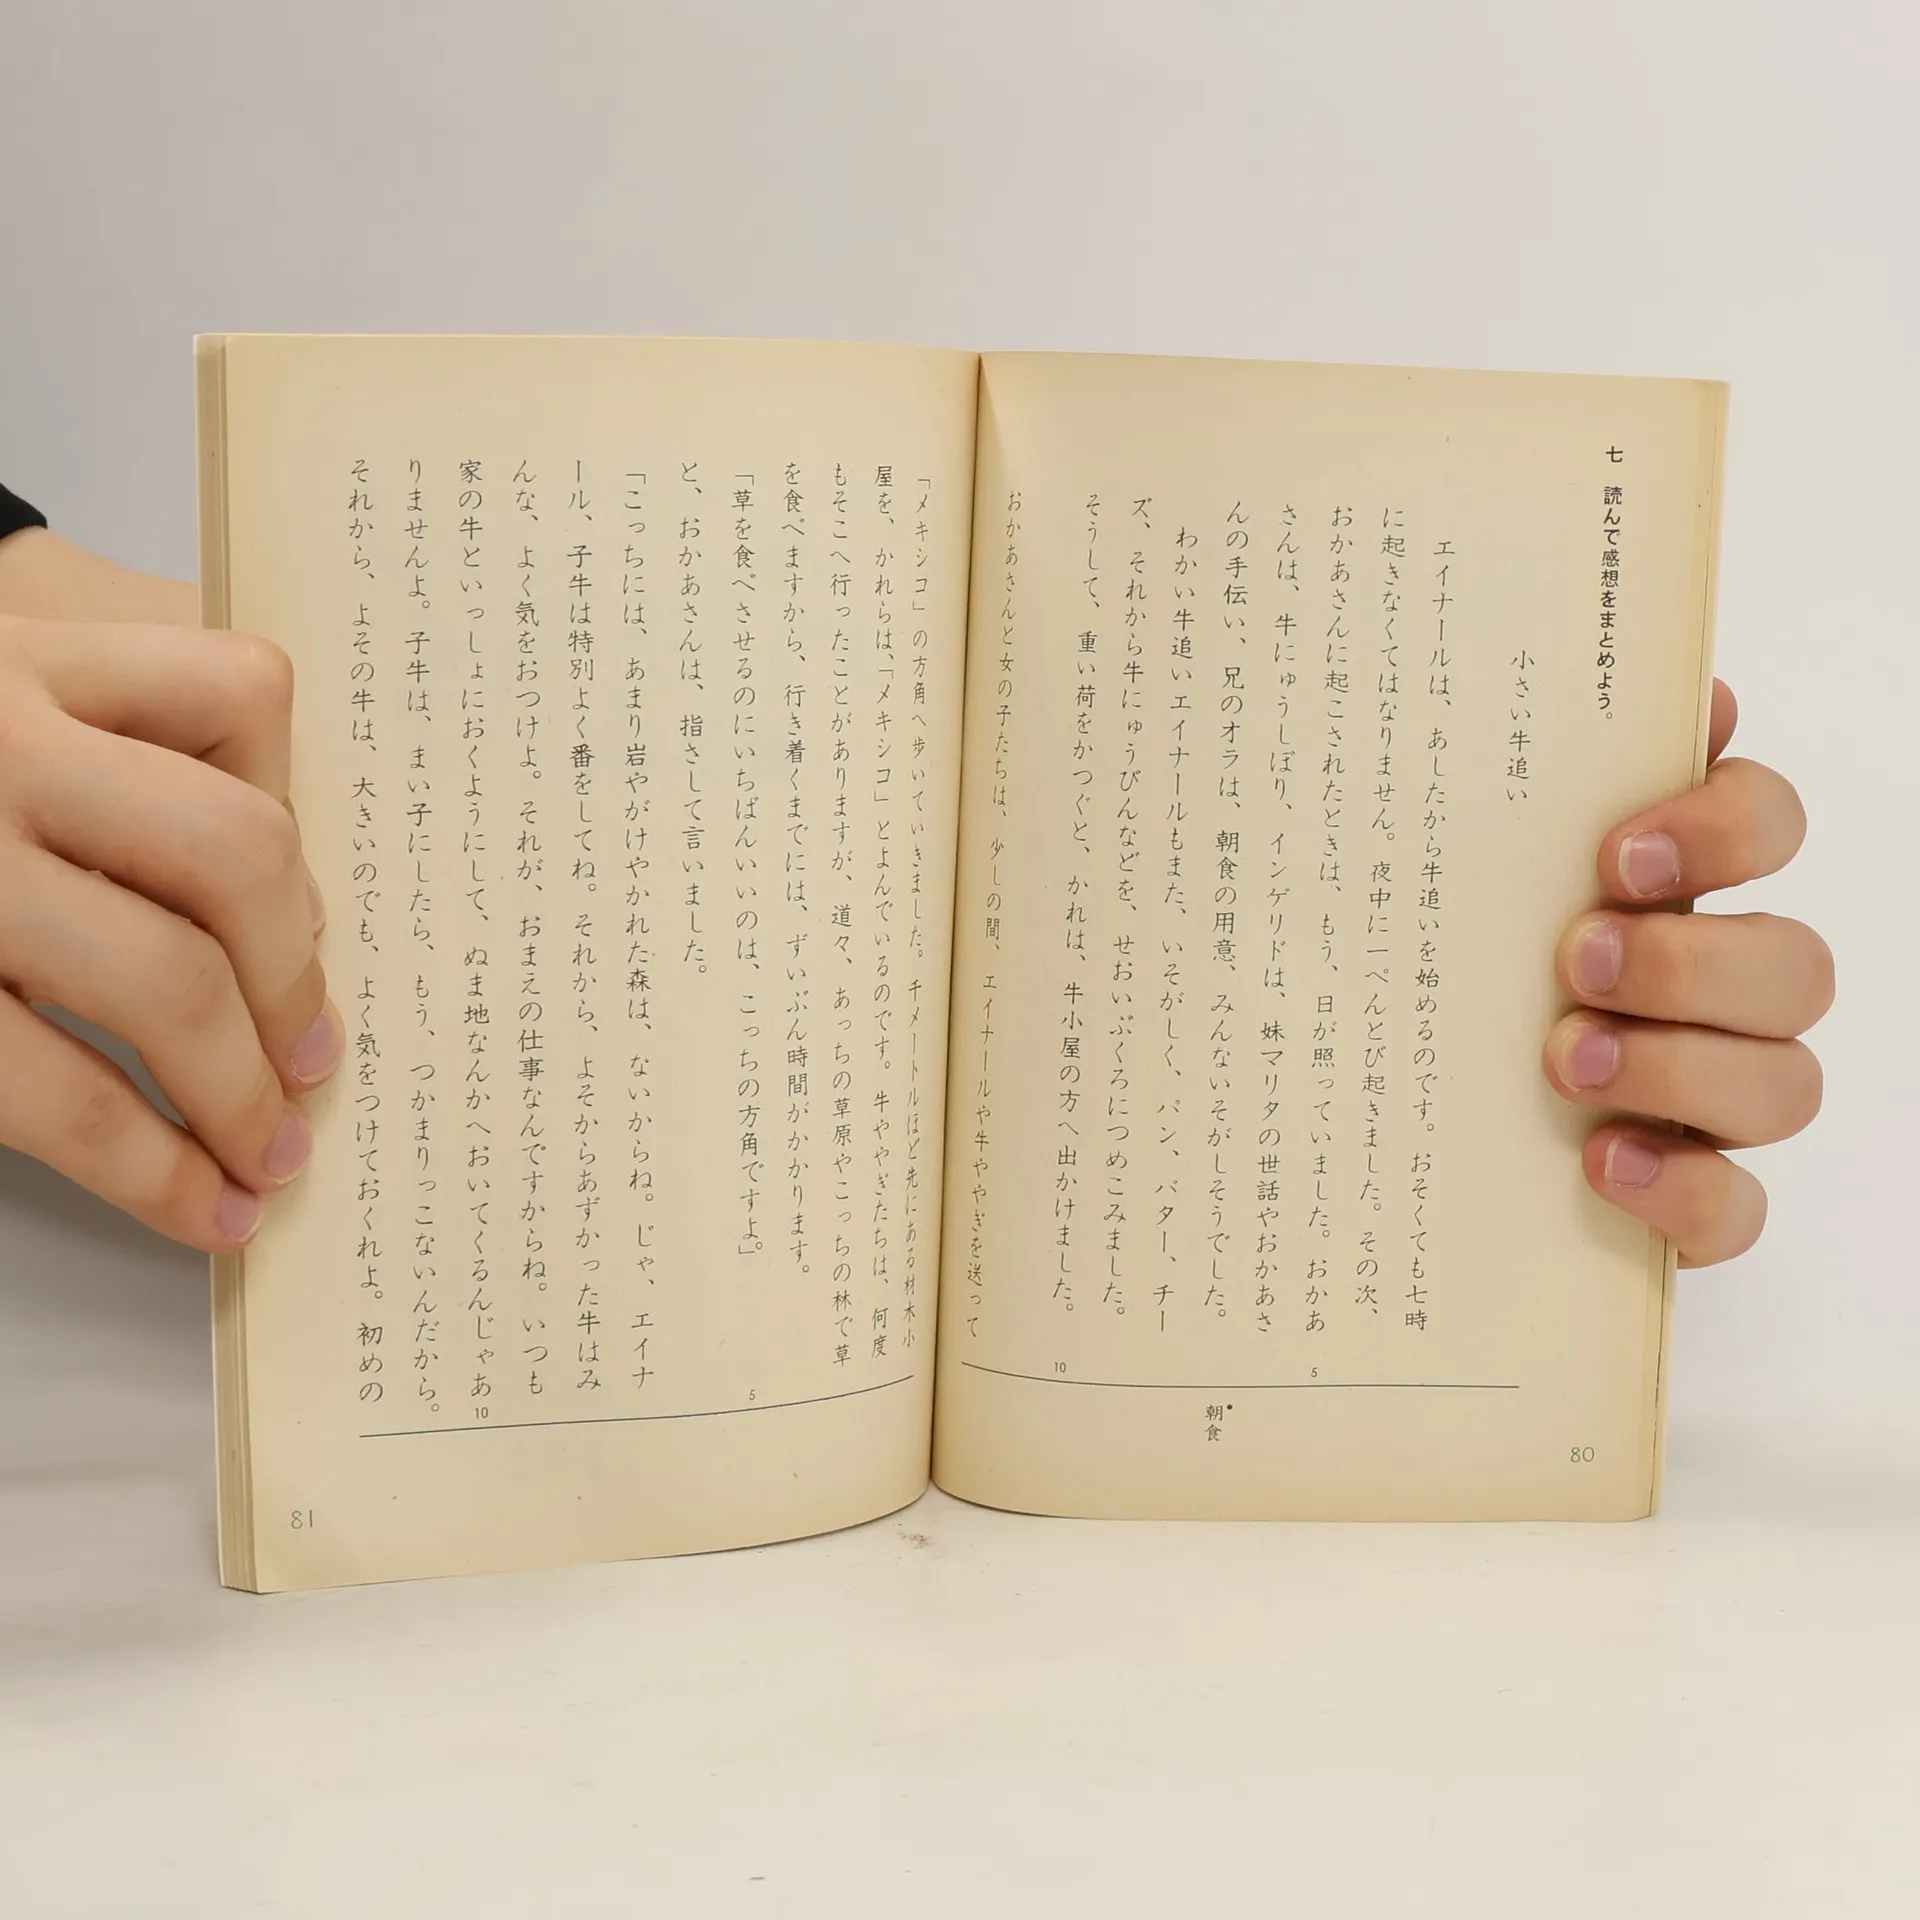 七　読んで感想をまとめよう。
小さい牛追い
エイナールは、あしたから牛追いを始めるのです。おそくても七時
に起きなくてはなりません。夜中に一ぺんとび起きました。その次、
おかあさんに起こされたときは、もう、日が照っていました。おかあ
さんは、牛にゅうしぼり、インゲリドは、妹マリタの世話やおかあさ
んの手伝い、兄のオラは、朝食の用意、みんないそがしそうでした。
わかい牛追いエイナールもまた、いそがしく、パン、バター、チー
ズ、それから牛にゅうびんなどを、せおいぶくろにつめこみました。
そうして、重い荷をかつぐと、かれは、牛小屋の方へ出かけました。
おかあさんと女の子たちは、少しの間、エイナールや牛ややぎを送って
5
10
朝食
80
「メキシコ」の方角へ歩いていきました。千メートルほど先にある材木小
屋を、かれらは、「メキシコ」とよんでいるのです。牛ややぎたちは、何度
もそこへ行ったことがありますが、道々、あっちの草原やこっちの林で草
を食べますから、行き着くまでには、ずいぶん時間がかかります。
「草を食べさせるのにいちばんいいのは、こっちの方角ですよ。」
と、おかあさんは、指さして言いました。
「こっちには、あまり岩やがけやかれた森は、ないからね。じゃ、エイナ
ール、子牛は特別よく番をしてね。それから、よそからあずかった牛はみ
んな、よく気をおつけよ。それが、おまえの仕事なんですからね。いつも
家の牛といっしょにおくようにして、ぬま地なんかへおいてくるんじゃあ
りませんよ。子牛は、まい子にしたら、もう、つかまりっこないんだから。
それから、よその牛は、大きいのでも、よく気をつけておくれよ。初めの
5
10
81